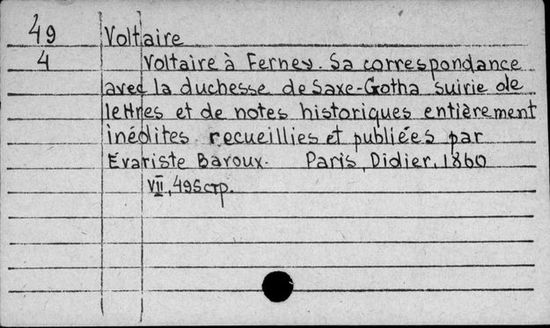 49 Voltaire
4 Voltaire à Ferney. Sa correspondance
avec la duchesse de Saxe-Gotha suirie de
lettres et de notes historiques entièrement
inédites recueillies et publiées par
Évariste Baroux. Paris, Didier, 1860
VII, 495 стр.